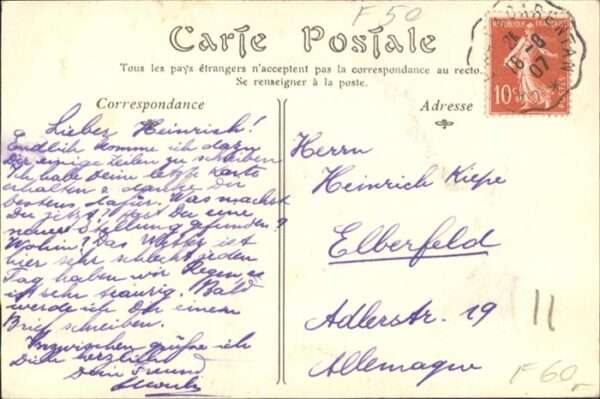 F 50
Carte Postale
Tous les pays étrangers n'acceptent pas la correspondance au recto.
Se renseigner à la poste.
Correspondance
Adresse
RÉPUBLIQUE FRANÇAISE
10c
18-8
07
Lieber Heinrich!
Endlich komme ich dazu
Dir einige Zeilen zu schreiben
Ich habe Deine letzte Karte
erhalten & danke Dir
bestens dafür. Was machst
Du jetzt? Hast Du eine
neue Stellung gefunden?
Wohin? Das Wetter ist
hier sehr schlecht, jeden
Tag haben wir Regen, es
ist sehr traurig. Bald
werde ich Dir einen
Brief schreiben.
Inzwischen grüße ich
Dich herzlichst
Dein Freund
Herrn
Heinrich Kiepe
Elberfeld
Adlerstr. 19
Allemagne
11
F 60,-